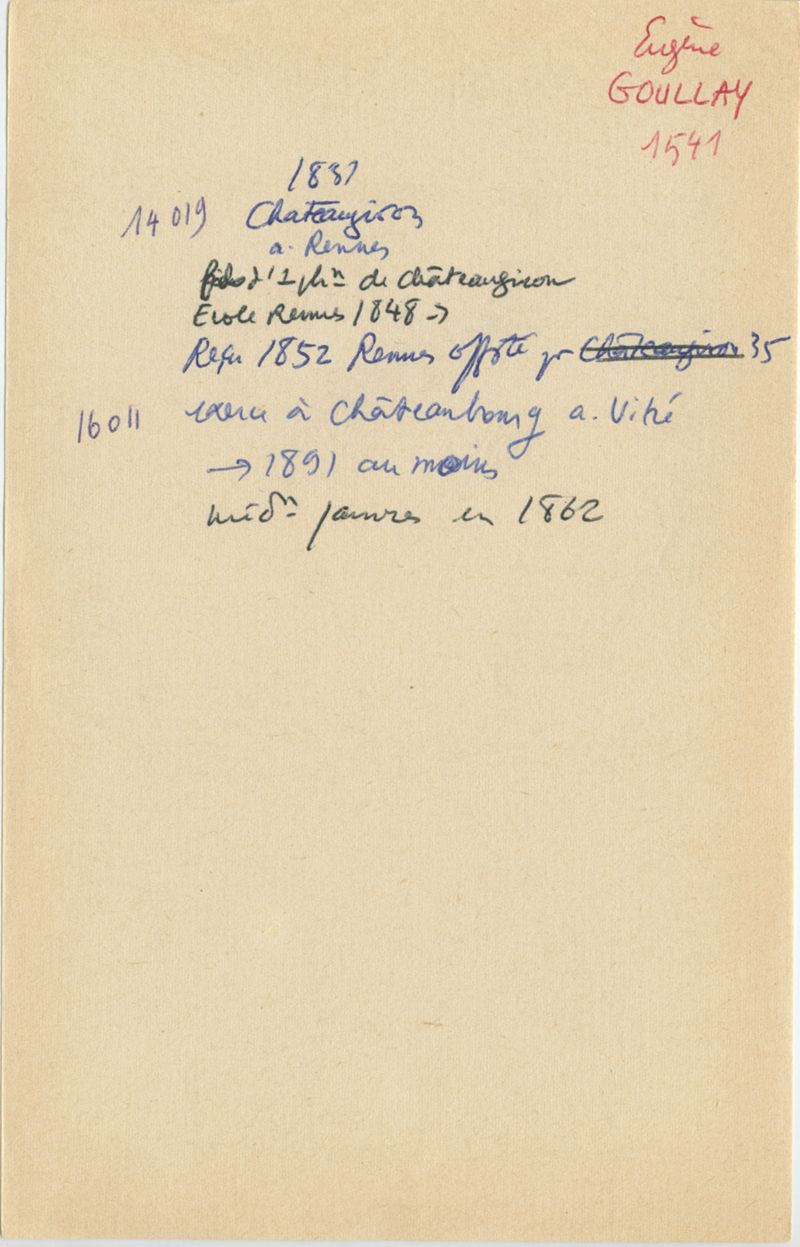 Eugène
GOULLAY
1541
1831
14 019 Chateaugiron
a. Rennes
fils d'1 phn de Châteaugiron
Ecole Rennes 1848 →
Reçu 1852 Rennes offste pr Châteaugiron 35
16 011 exerce à Châteaubourg a. Vitré
→ 1891 au moins
médn pauvres en 1862